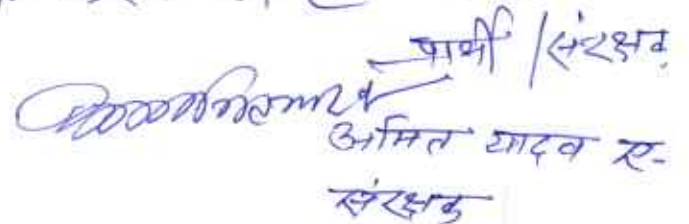 प्रार्थी / संरक्षक
अमित यादव ए-
संरक्षक